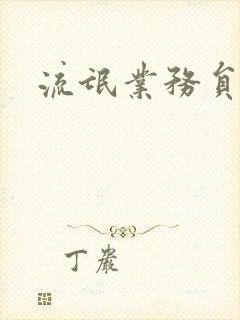 流氓業務員
丁嚴